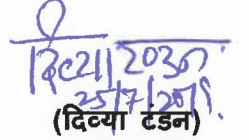 दिव्या टंडन
25/7/2019.
(दिव्या टंडन)